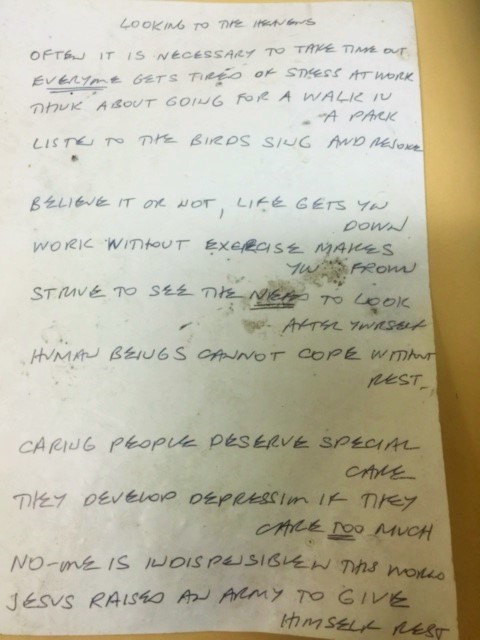 LOOKING TO THE HEAVENS
OFTEN IT IS NECESSARY TO TAKE TIME OUT
EVERYONE GETS TIRED OF STRESS AT WORK
THINK ABOUT GOING FOR A WALK IN
A PARK
LISTEN TO THE BIRDS SING AND REJOICE
BELIEVE IT OR NOT, LIFE GETS YOU
DOWN
WORK WITHOUT EXERCISE MAKES
YOU FROWN
STRIVE TO SEE THE NEED TO LOOK
AFTER YOURSELF
HUMAN BEINGS CANNOT COPE WITHOUT
REST.
CARING PEOPLE DESERVE SPECIAL
CARE
THEY DEVELOP DEPRESSION IF THEY
CARE TOO MUCH
NO-ONE IS INDISPENSIBLE IN THIS WORLD
JESUS RAISED AN ARMY TO GIVE
HIMSELF REST